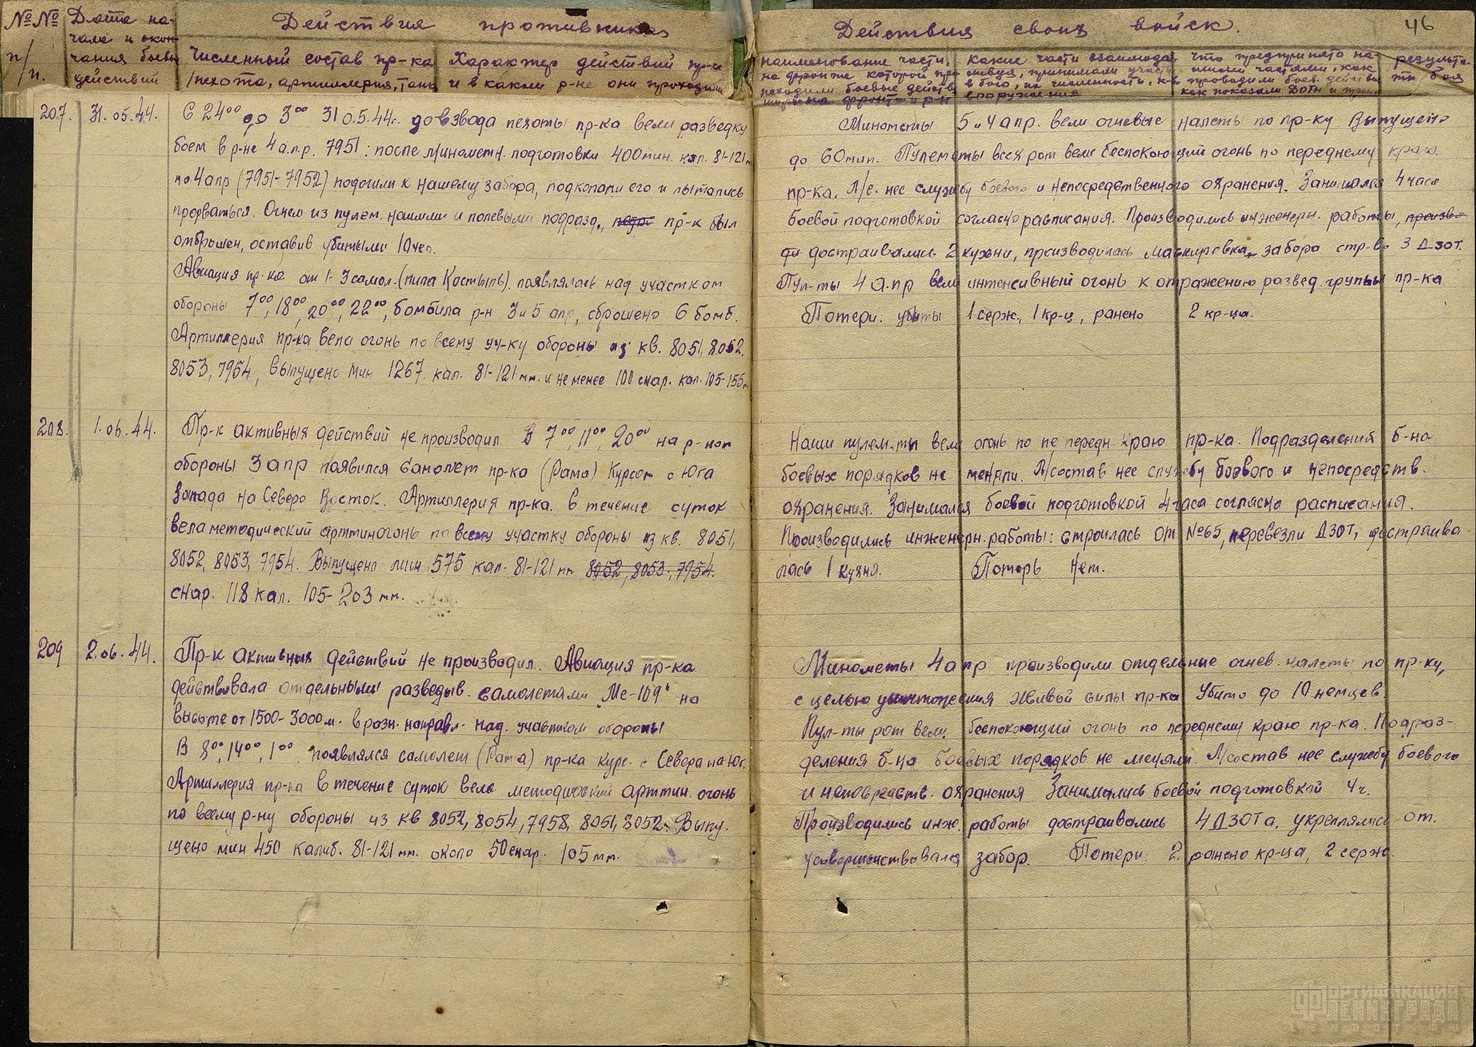 №№ п/п.
Дата на-
чала и окон-
чания боевы
действий
Действия противника
Численный состав пр-ка
/пехота, артиллерия, танк
Характер действий пр-ка
и в каком р-не они проходили
Действия своих войск.
46
наименование части,
на фронте которой про
исходили боевые действ
какие части взаимодей
в бою, их численность,
вооружение
что предпринято на-
шими частями, как
проводили боев. действ
как показали ДОТы и
результа-
ты боя
207.
31.05.44.
С 24⁰⁰ до 3⁰⁰ 31 0.5.44г. до взвода пехоты пр-ка вели разведку
боем в р-не 4 а.п.р. 7951: после миномётн. подготовки 400 мин. кал. 81-121 м
по 4 апр (7951-7952) подошли к нашему забора, подкопали его и пытались
прорваться. Огнем из пулем. нашими и полевыми подразд., пр-к был
отброшен, оставив убитыми 10 чел.
Авиация пр-ка от 1-3 самол. (типа Костыль) появлялась над участком
обороны 7⁰⁰, 18⁰⁰, 20⁰⁰, 22⁰⁰, бомбила р-н 3 и 5 апр, сброшено 6 бомб.
Артиллерия пр-ка вела огонь по всему уч-ку обороны из кв. 8051, 8052,
8053, 7954, выпущено мин 1267 кал. 81-121 мм. и не менее 100 снар. кал. 105-155 м
Минометы 5 и 4 апр. вели огневые налеты по пр-ку выпущено
до 60 мин. Пулеметы всех рот вели беспокоющий огонь по переднему краю
пр-ка. Л/с. нес службу боевого и непосредственного охранения. Занимался 4 часа
боевой подготовкой согласно расписания. Производились инженерн. работы, произво-
ди достраивались 2 кухни, производилась маскировка забора стр-во 3 ДЗОТ.
Пул-ты 4 а.пр вели интенсивный огонь к отражению развед группы пр-ка
Потери: убиты 1 серж., 1 кр-ц, ранено 2 кр-ца.
208.
1.06.44.
Пр-к активных действий не производил. В 7⁰⁰, 11⁰⁰, 20⁰⁰ на р-ном
обороны 3 апр появился самолет пр-ка (Рама) курсом с Юга
Запада на Северо Восток. Артиллерия пр-ка. в течение суток
вела методический артминогонь по всему участку обороны из кв. 8051,
8052, 8053, 7954. Выпущено мин 575 кал. 81-121 мм 8052, 8053, 7954.
снар. 118 кал. 105-203 мм.
Наши пулем-ты вели огонь по пе передн. краю пр-ка. Подразделения б-на
боевых порядков не меняли. Л/состав нес службу боевого и непосредств.
охранения. Занимался боевой подготовкой 4 часа согласно расписания.
Производились инженерн. работы: строилась ОТ №65, перевезли ДЗОТ, достраива-
лась 1 кухня. Потерь нет.
209
2.06.44.
Пр-к активных действий не производил. Авиация пр-ка
действовала отдельными разведыв. самолетами "Ме-109" на
высоте от 1500-3000 м. в разн. направл. над участком обороны
В 8⁰⁰, 14⁰⁰, 1⁰⁰ появлялся самолет (Рама) пр-ка курс. с Севера на Юг.
Артиллерия пр-ка в течение суток вела методический арттмин. огонь
по всему р-ну обороны из кв 8052, 8054, 7958, 8051, 8052. Выпу.
щено мин 450 калиб. 81-121 мм. около 50 снар. 105 мм.
Минометы 4 апр производили отдельные огнев. налеты по пр-ку,
с целью уничтожения живой силы пр-ка. Убито до 10 немцев.
Пул-ты рот вели беспокоющий огонь по переднему краю пр-ка. Подраз-
деления б-на боевых порядков не меняли. Л/состав нес службу боевого
и непосредств. охранения Занимались боевой подготовкой 4 ч.
Производились инж. работы достраивались 4 ДЗОТа, укреплялись от.
усовершенствовался забор. Потери: 2 ранено кр-ца, 2 серж.
ФОРТИФИКАЦИИ
ЛЕНИНГРАДА